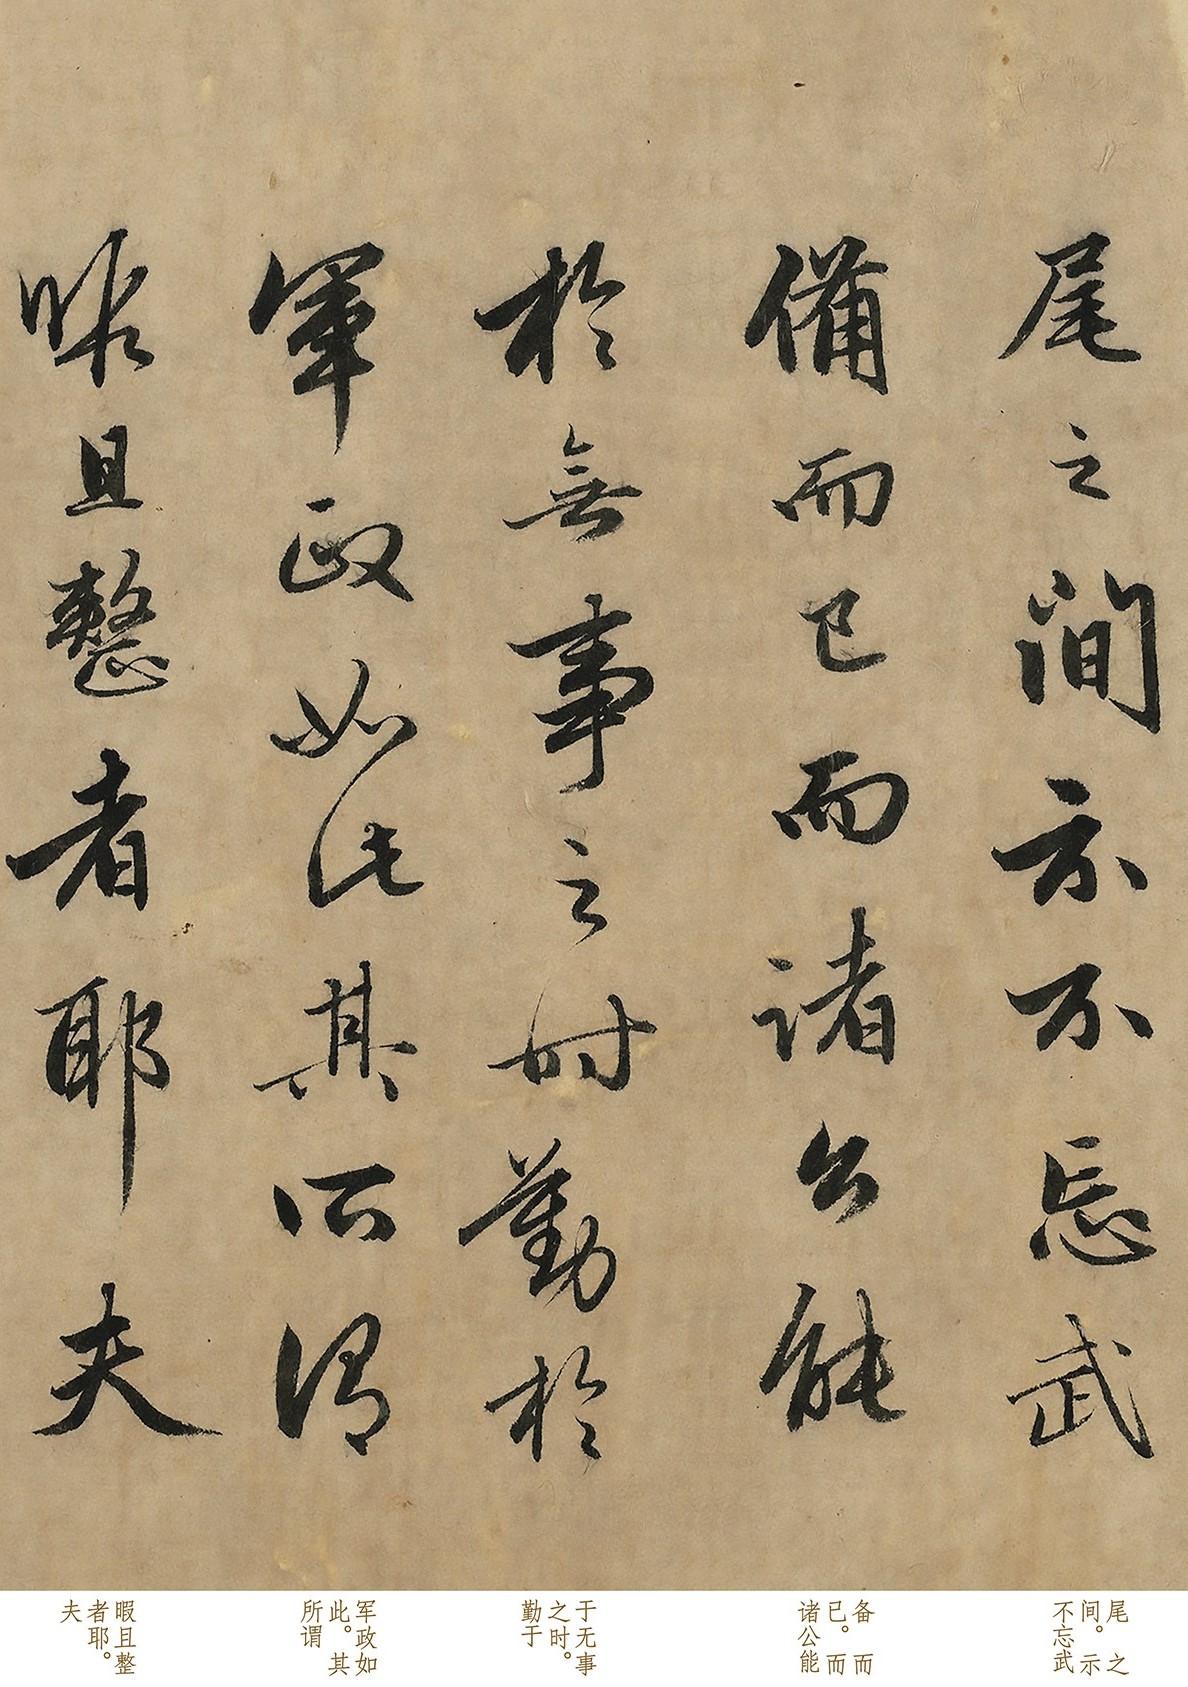 尾之間示不忘武
備而已而諸公能
於無事之時勤於
軍政如此其所謂
暇且整者耶夫
尾 之
间。示
不忘武
备 而
已。而
诸公能
于无事
之时。
勤于
军政如
此。其
所谓
暇且整
者耶。
夫